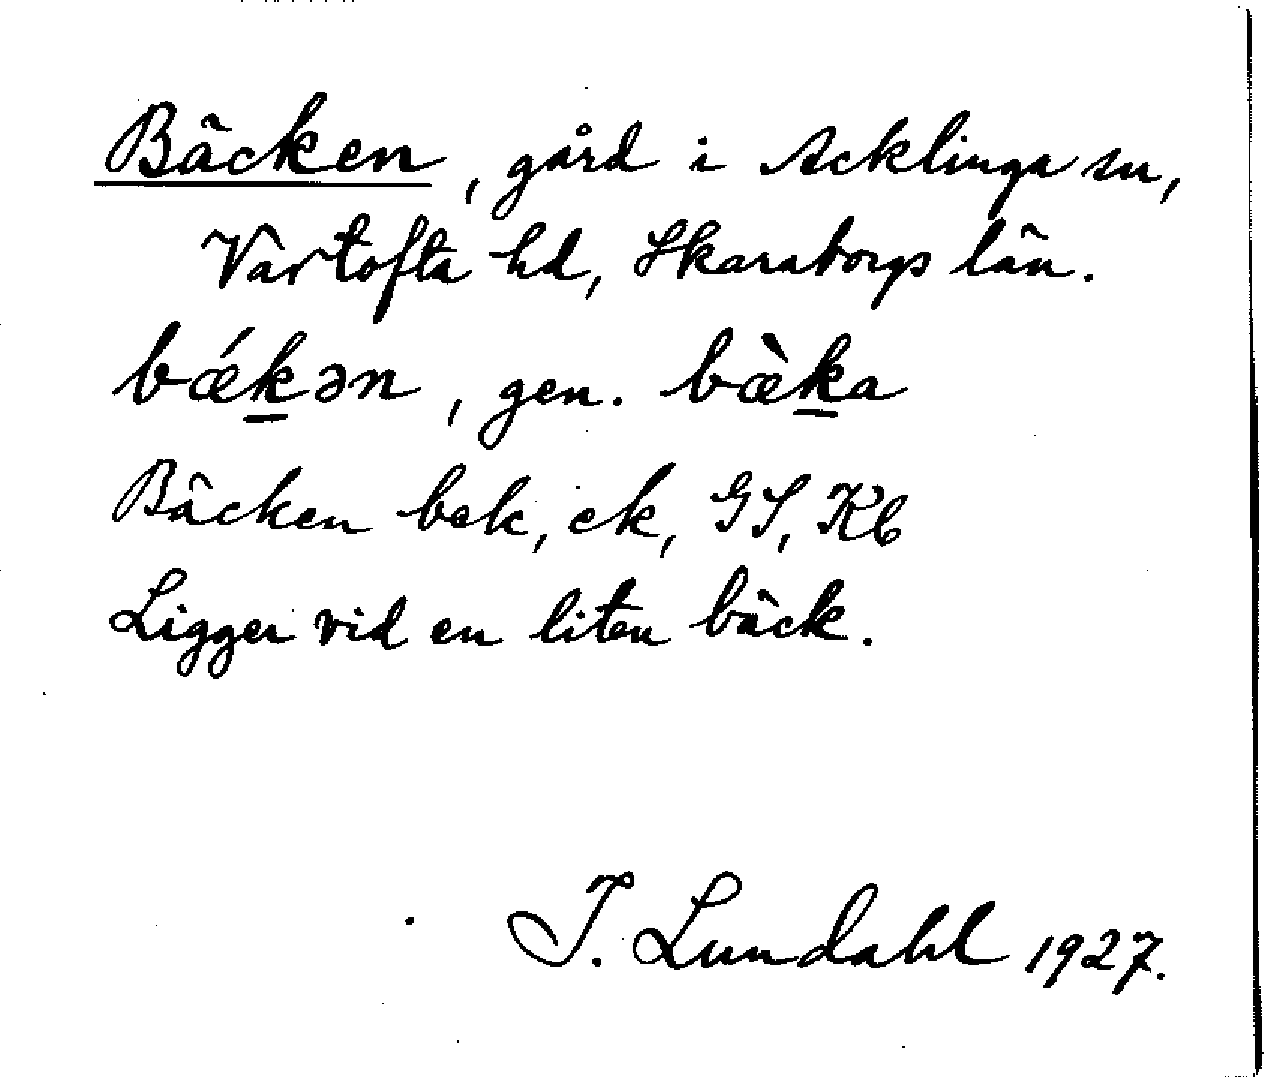 Bäcken, gård i Acklinga sn,
Vartofta hd, Skaraborgs län.
bǽk̲ən, gen. bæ̀k̲a
Bäcken bek, ek, GS, Kb
Ligger vid en liten bäck.
I. Lundahl 1927.